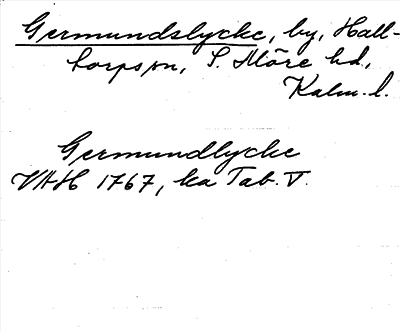 Germundslycke, by, Hall-
torps sn, S. Möre hd,
Kalm. l.
Germundlycke
VAH 1767, ka Tab. V.